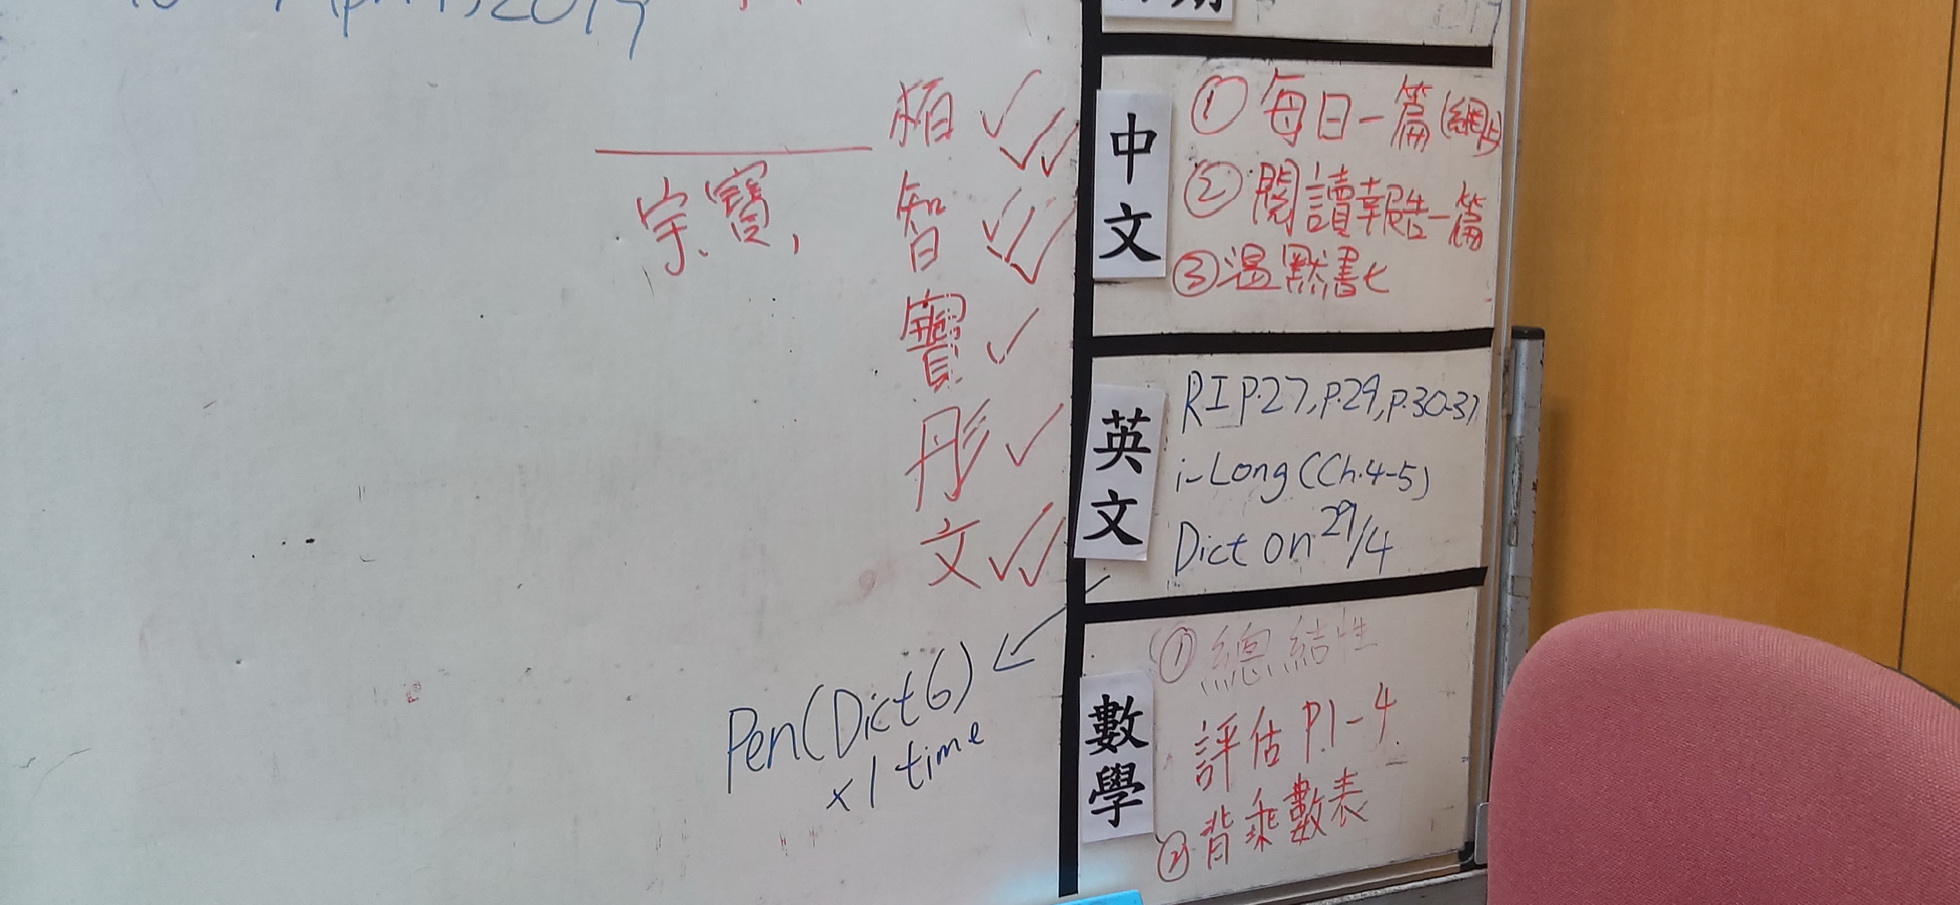 April, 2019
栢
宇、寶,
智
寶
彤
文
Pen(Dict 6)
x 1 time
中文
① 每日一篇(網上)
② 閱讀報告一篇
③ 溫默書七
英文
RI P.27, P.29, P.30-31
i-Long (Ch.4-5)
Dict on 29/4
數學
① 總結性
評估 P.1-4
② 背乘數表